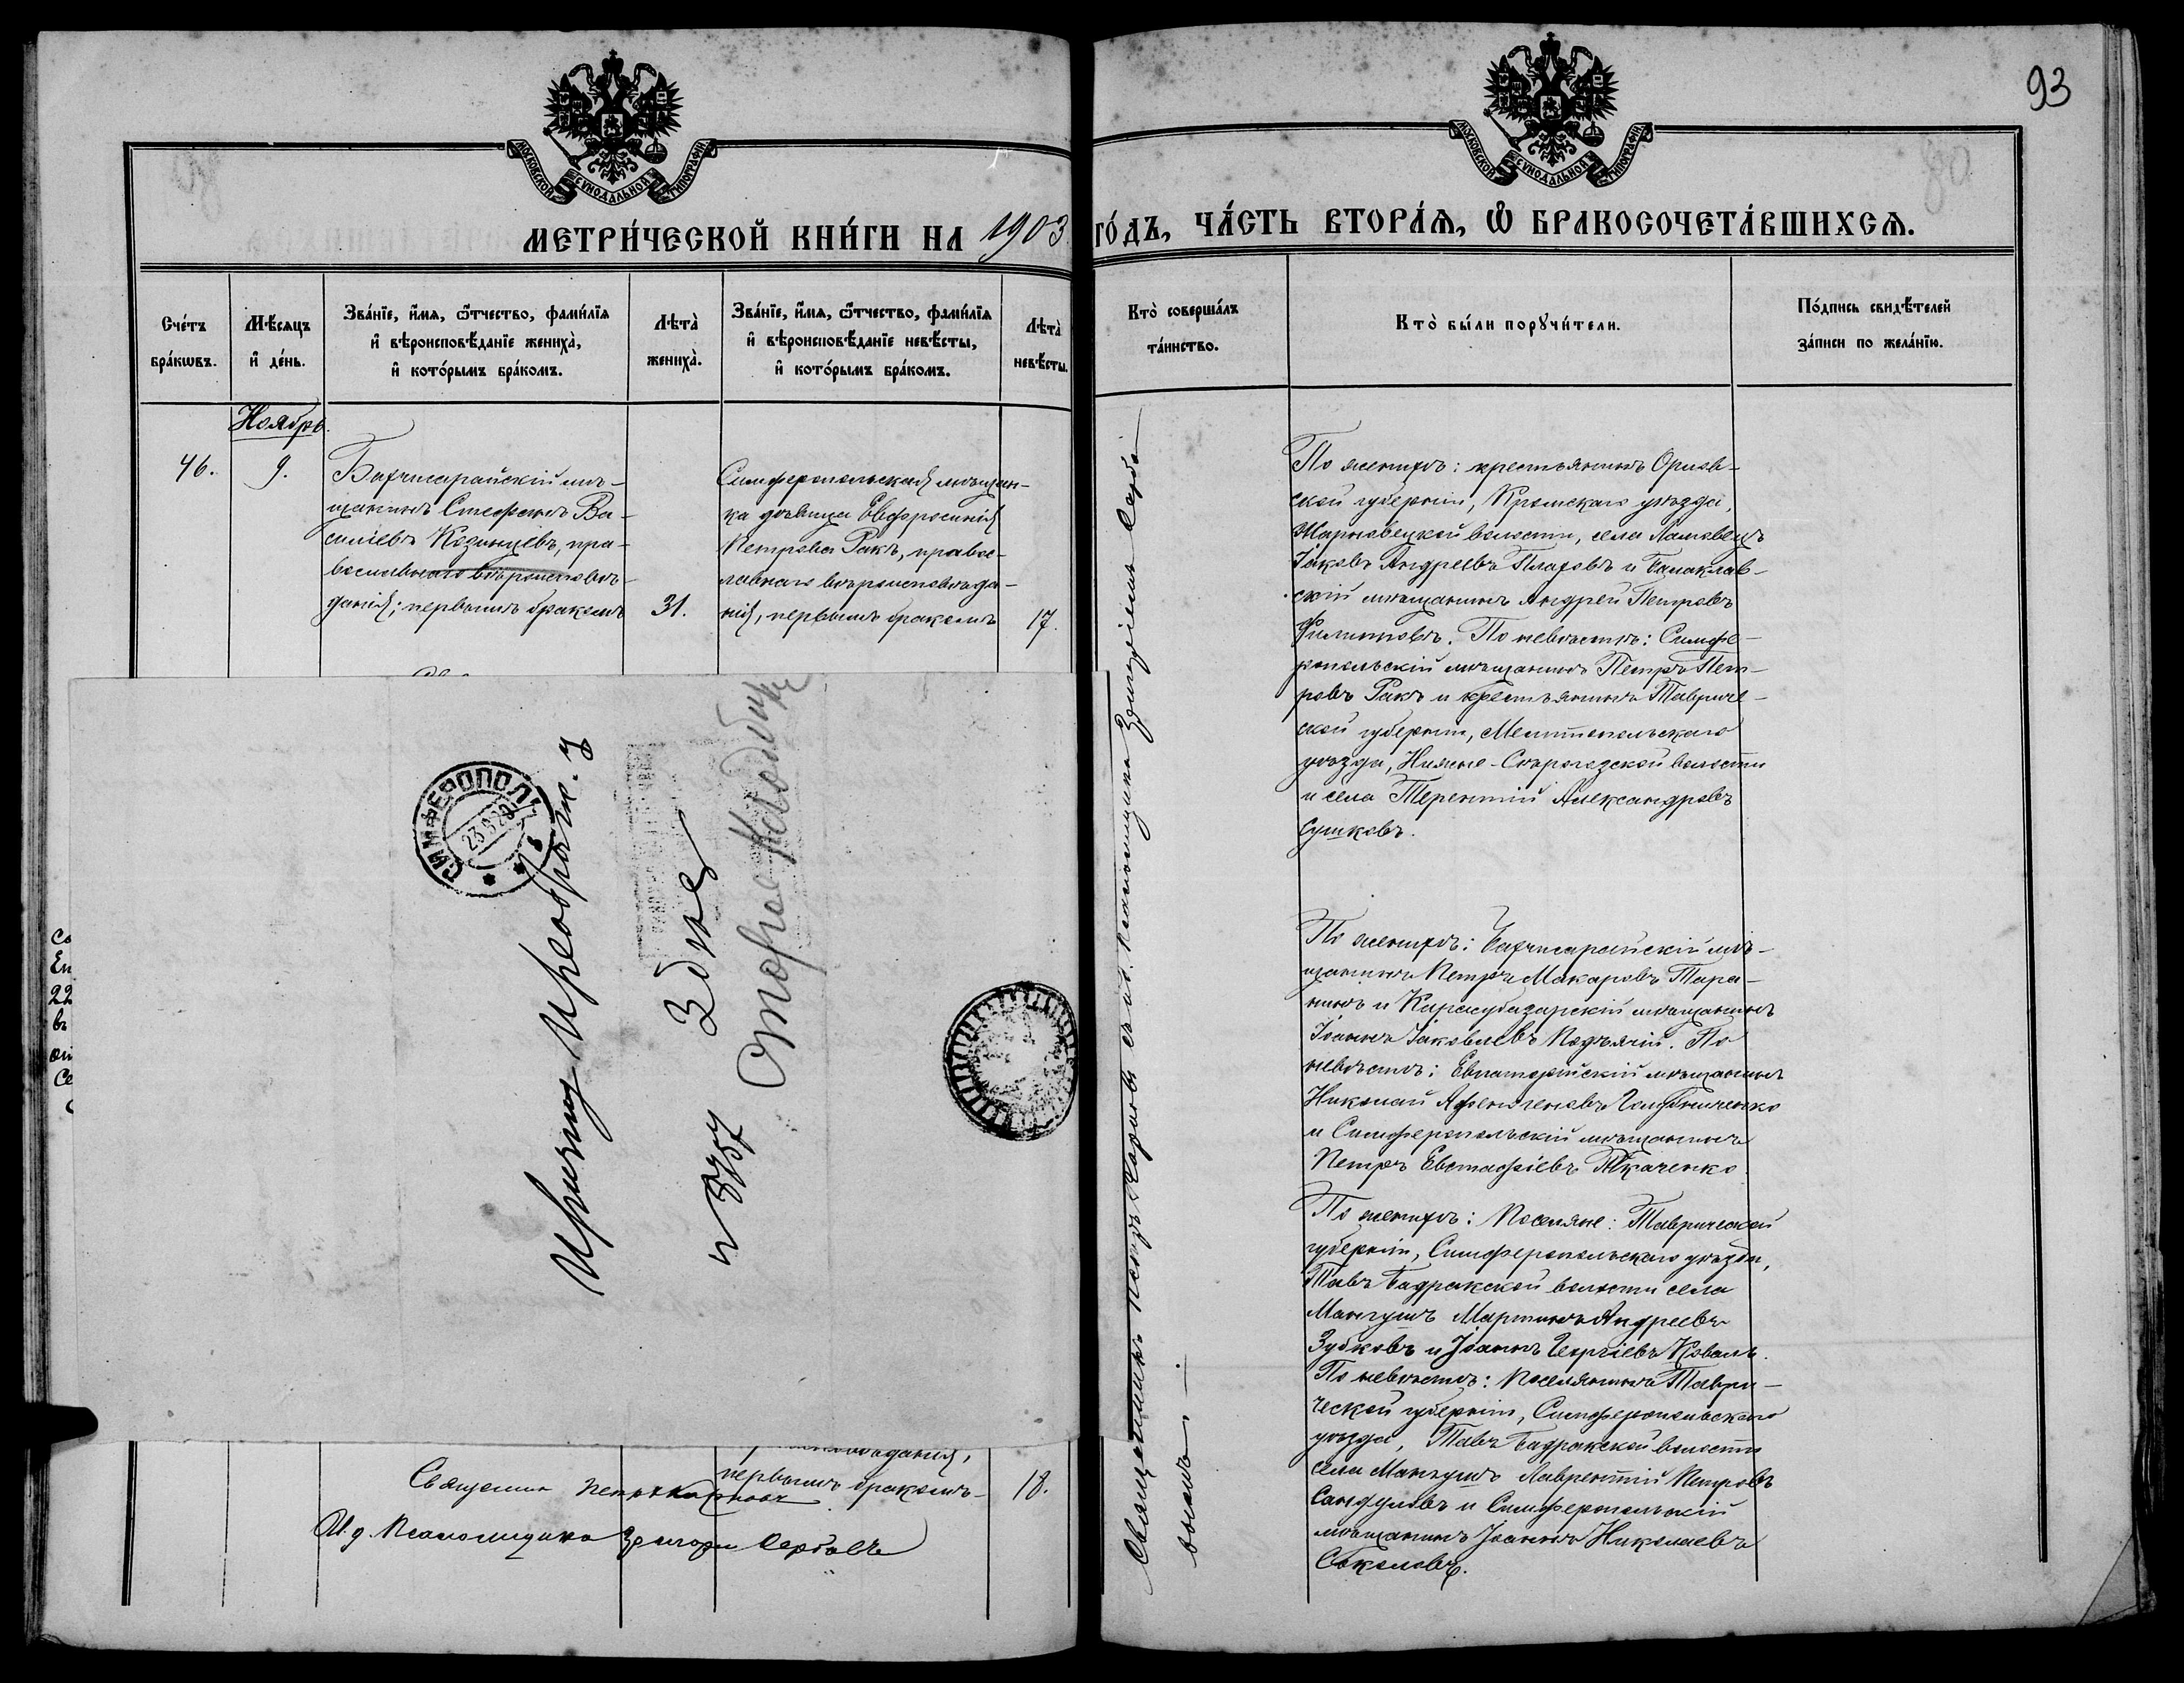 93
МОСКОВСКОЙ СѴНОДАЛЬНОЙ ТИПОГРАФІИ
МОСКОВСКОЙ СѴНОДАЛЬНОЙ ТИПОГРАФІИ
МЕТРИ́ЧЕСКОЙ КНИ́ГИ НА 1903
ГО́ДЪ, ЧА́СТЬ ВТОРА́Ѧ, Ѽ БРАКОСОЧЕТА́ВШИХСѦ.
Сче́тъ
бра́кѡвъ.
Мѣ́сѧцъ
и҆ де́нь.
Зва́нїе, и҆́мѧ, ѻ҆́тчество, фами́лїѧ
и҆ вѣроисповѣ́данїе жениха̀,
и҆ кото́рымъ бра́комъ.
Лѣта̀
жениха̀.
Зва́нїе, и҆́мѧ, ѻ҆́тчество, фами́лїѧ
и҆ вѣроисповѣ́данїе невѣ́сты,
и҆ кото́рымъ бра́комъ.
Лѣта̀
невѣ́сты.
Кто̀ соверша́лъ
та́инство.
Кто̀ бы́ли порꙋчи́тели.
По́дпись свидѣ́телей
за́писи по жела́нїю.
Ноябрь.
46.
9.
Бахчисарайскій мѣ-
щанинъ Стефанъ Ва-
силіевъ Козинцевъ, пра-
вославнаго вѣроисповѣ-
данія; первымъ бракомъ
31.
Симферопольская мѣщан-
ка дѣвица Евфросинія
Петрова Ракъ, правос-
лавнаго вѣроисповѣда-
нія, первымъ бракомъ
17.
По женихѣ: крестьянинъ Орлов-
ской губерніи, Кромскаго уѣзда,
волости, села
Іаковъ Андреевъ и Балаклав-
скій мѣщанинъ Андрей Петровъ
Филипповъ. По невѣстѣ: Симфе-
ропольскій мѣщанинъ Петръ Пет-
ровъ Ракъ и крестьянинъ Тавриче-
ской губерніи, Мелитопольскаго
уѣзда, Нижне-Сѣрогозской волости
и села Терентій Александровъ
Сушковъ.
По женихѣ: Бахчисарайскій мѣ-
щанинъ Петръ Макаровъ Тара-
нинъ и Карасубазарскій мѣщанинъ
Іоаннъ Іаковлевъ Подъячій. По
невѣстѣ: Евпаторійскій мѣщанинъ
Николай
и Симферопольскій мѣщанинъ
Петръ Евстафіевъ Ткаченко.
По женихѣ: Поселяне: Таврической
губерніи, Симферопольскаго уѣзда,
Тавъ Бадракской волости села
Мангушъ Мартинъ Андреевъ
Зубковъ и Іоаннъ Георгіевъ Коваль.
По невѣстѣ: Поселянинъ Таври-
ческой губерніи, Симферопольскаго
уѣзда, Тавъ Бадракской волости
села Мангушъ Лаврентій Петровъ
Сандуловъ и Симферопольскій
мѣщанинъ Іоаннъ Николаевъ
Соколовъ.
СИМФЕРОПОЛЬ
Причту
Здѣсь
первымъ бракомъ
18.
И. д. Псаломщика